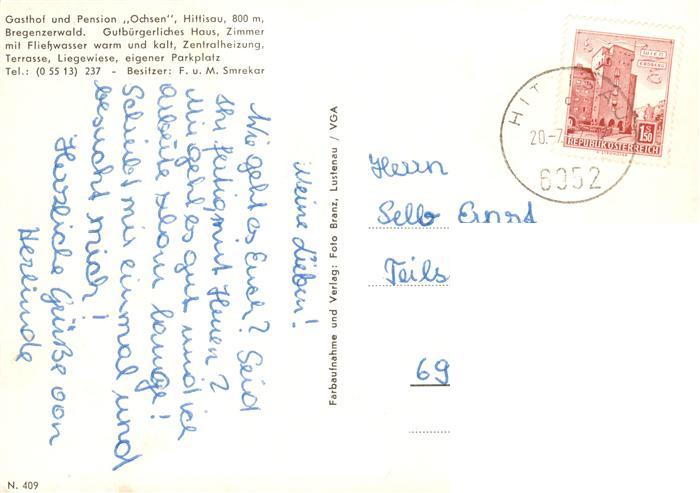 Gasthof und Pension „Ochsen", Hittisau, 800 m,
Bregenzerwald. Gutbürgerliches Haus, Zimmer
mit Fließwasser warm und kalt, Zentralheizung,
Terrasse, Liegewiese, eigener Parkplatz
Tel.: (0 55 13) 237 - Besitzer: F. u. M. Smrekar
Meine Lieben!
Wie geht es Euch? Seid
Ihr fertig mit Heuen?
Mir geht es gut und ich
arbeite schon lange!
Schreibt mir einmal und
besucht mich!
Herzliche Grüße von
Herlinde
Farbaufnahme und Verlag: Foto Branz, Lustenau / VGA
WIEN
ERDBERG
S
1.50
REPUBLIK ÖSTERREICH
HIT
20.-7.
6952
Herrn
Selb Ernst
Teils
69
N. 409